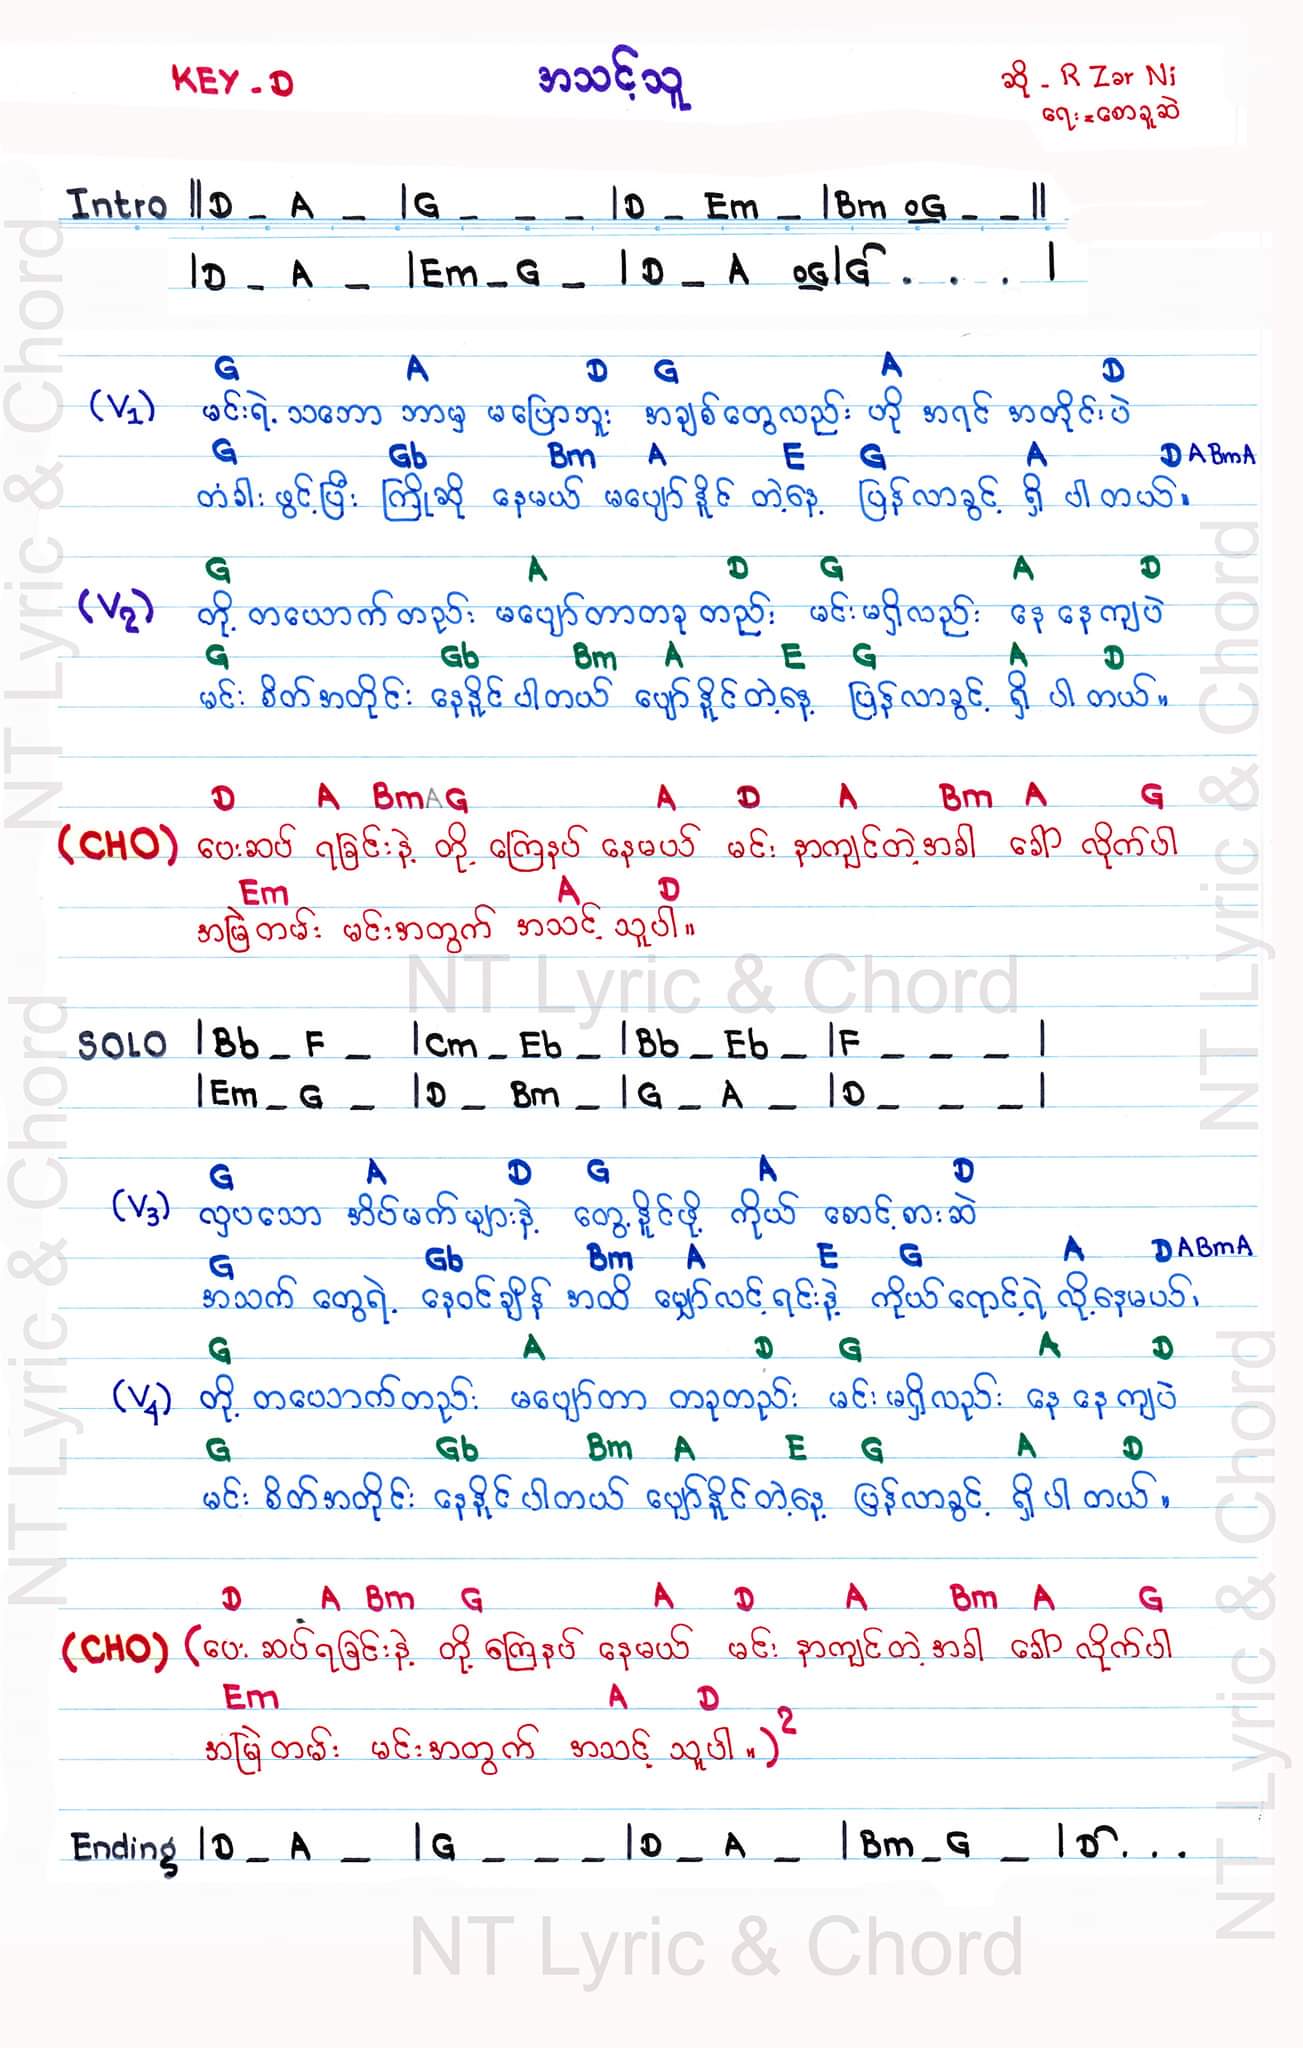 KEY - D အသင့်သူ ဆို - R Zar Ni
ရေး = စောခူဆဲ
Intro ||D _ A _ |G _ _ _ |D _ Em _ |Bm oG _ _||
|D _ A _ |Em _ G _ |D _ A oG|G . . . |
G A D G A D
(V1) မင်းရဲ့ သဘော ဘာမှ မပြောဘူး အချစ်တွေလည်း ဟို အရင် အတိုင်းပဲ
G Gb Bm A E G A D A BmA
တံခါး ဖွင့်ပြီး ကြိုဆို နေမယ် မပျော်နိုင် တဲ့နေ့ ပြန်လာခွင့် ရှိ ပါ တယ်။
G A D G A D
(V2) တို့ တယောက်တည်း မပျော်တာတခု တည်း မင်းမရှိလည်း နေ နေကျပဲ
G Gb Bm A E G A D
မင်း စိတ်အတိုင်း နေနိုင်ပါတယ် ပျော်နိုင်တဲ့နေ့ ပြန်လာခွင့် ရှိ ပါ တယ်။
D A BmA G A D A Bm A G
(CHO) ပေးဆပ် ရခြင်းနဲ့ တို့ ကြေနပ် နေမယ် မင်း နာကျင်တဲ့အခါ ခေါ် လိုက်ပါ
Em A D
အမြဲတမ်း မင်းအတွက် အသင့် သူပါ။
NT Lyric & Chord
SOLO |Bb _ F _ |Cm _ Eb _ |Bb _ Eb _ |F _ _ _ |
|Em _ G _ |D _ Bm _ |G _ A _ |D _ _ _ |
G A D G A D
(V3) လှပသော အိပ်မက်များနဲ့ တွေ့နိုင်ဖို့ ကိုယ် စောင့်စားဆဲ
G Gb Bm A E G A D A BmA
အသက် တွေရဲ့ နေဝင်ချိန် အထိ မျှော်လင့်ရင်းနဲ့ ကိုယ်ရောင့်ရဲ လို့နေမယ်၊
G A D G A D
(V4) တို့ တယောက်တည်း မပျော်တာ တခုတည်း မင်းမရှိလည်း နေ နေကျပဲ
G Gb Bm A E G A D
မင်း စိတ်အတိုင်း နေနိုင်ပါတယ် ပျော်နိုင်တဲ့နေ့ ပြန်လာခွင့် ရှိ ပါ တယ်။
D A Bm G A D A Bm A G
(CHO) (ပေး ဆပ်ရခြင်းနဲ့ တို့ ကြေနပ် နေမယ် မင်း နာကျင်တဲ့အခါ ခေါ် လိုက်ပါ
Em A D
အမြဲတမ်း မင်းအတွက် အသင့် သူပါ။)2
Ending |D _ A _ |G _ _ _ |D _ A _ |Bm _ G _ |D . . .
NT Lyric & Chord
NT Lyric & Chord
NT Lyric & Chord
NT Lyric & Chord
NT Lyric & Chord